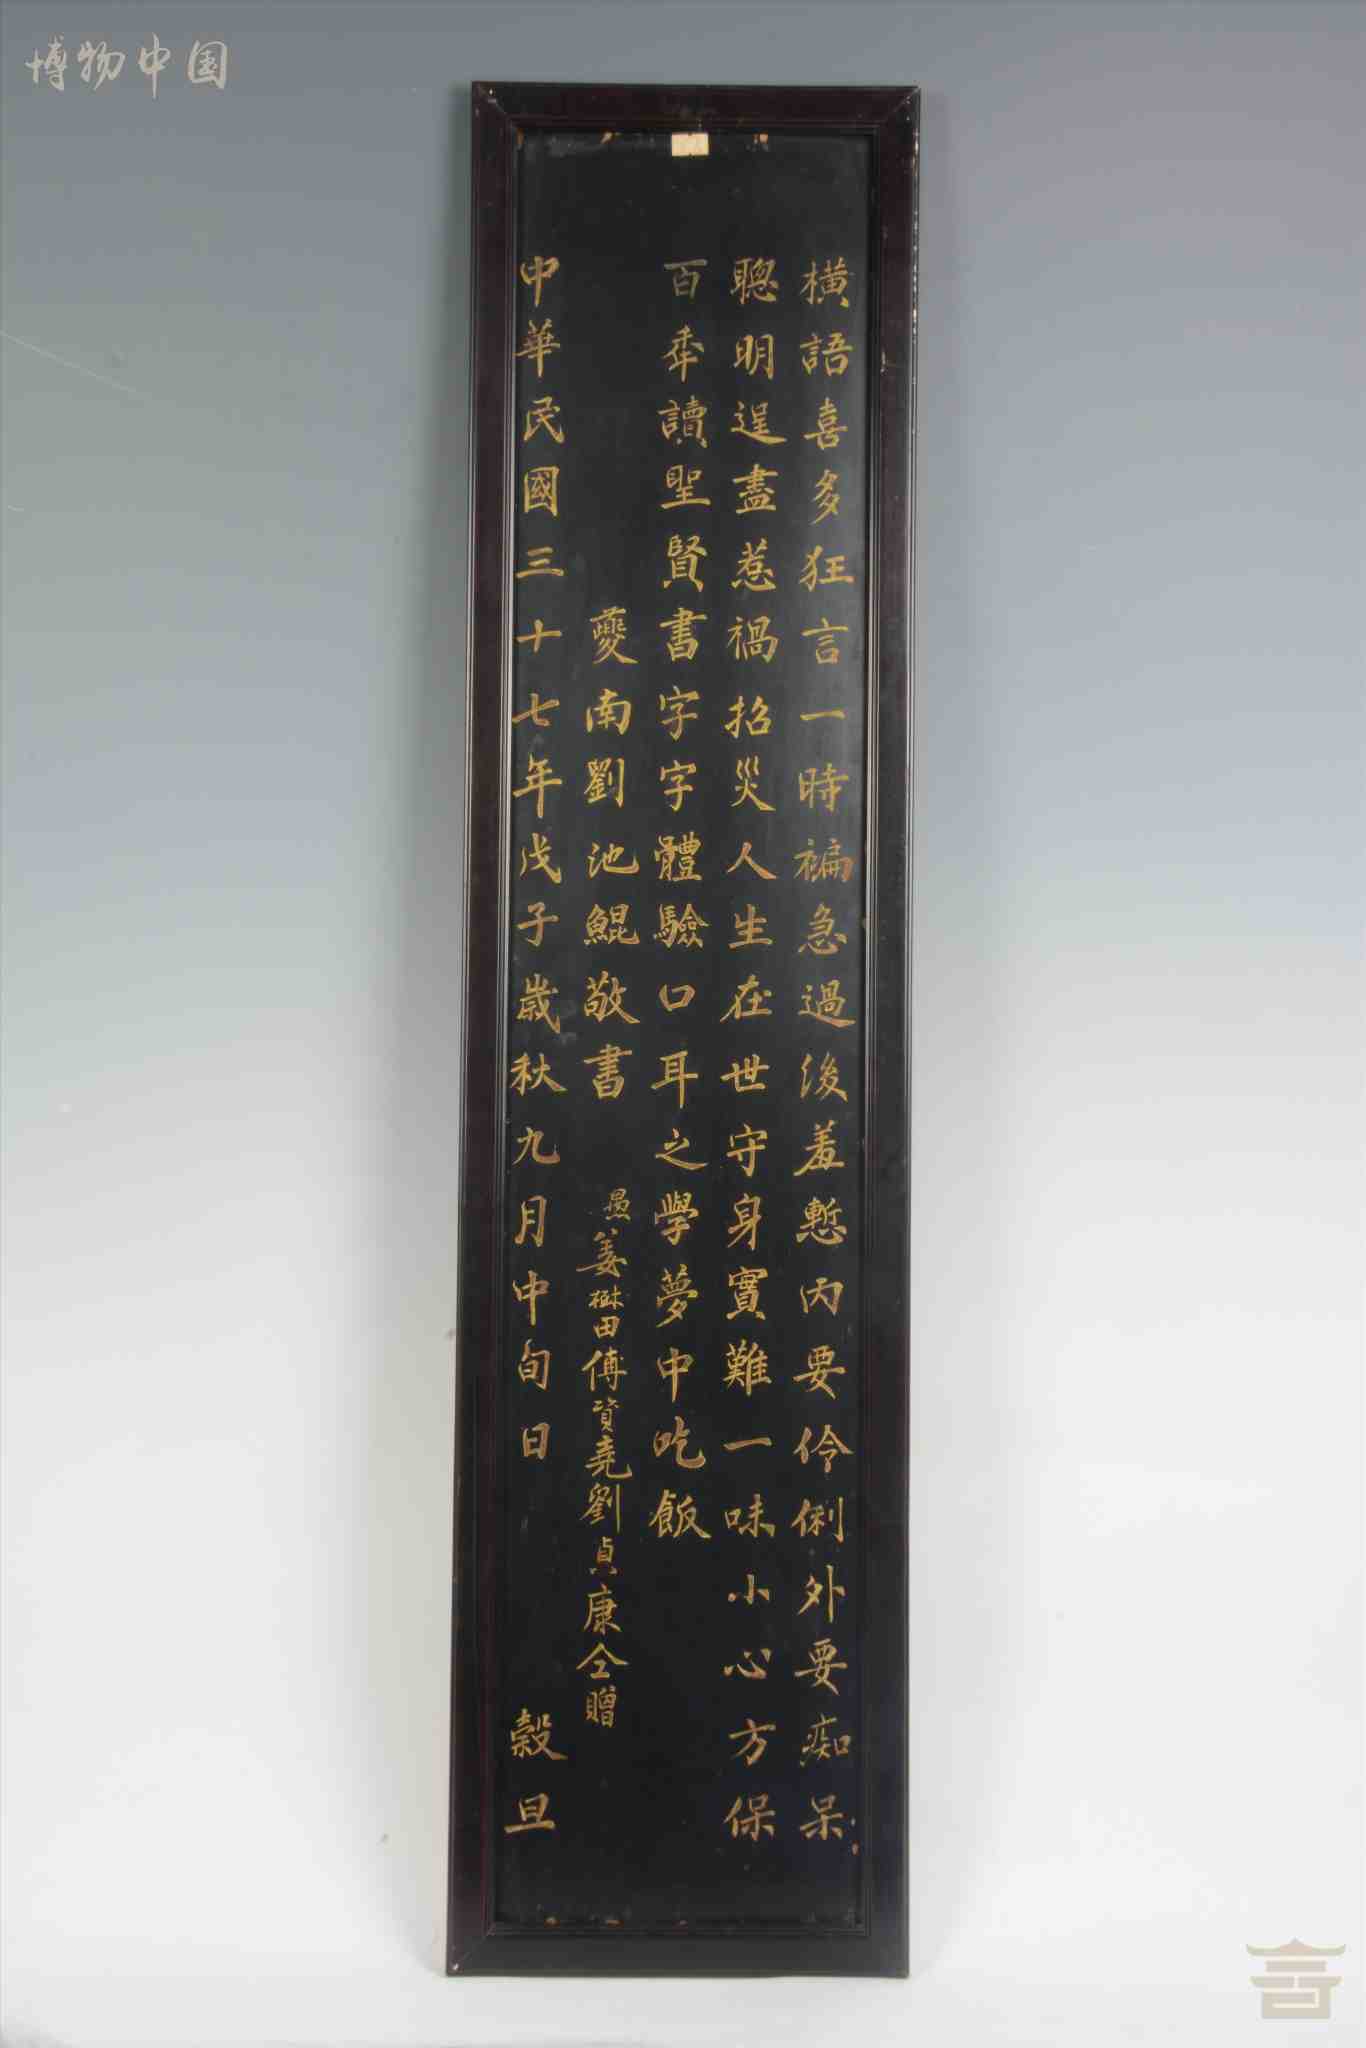 博物中国
橫語喜多狂言一時褊急過後羞慙內要伶俐外要痴呆
聰明逞盡惹禍招災人生在世守身實難一味小心方保
百年讀聖賢書字字體驗口耳之學夢中吃飯
夔南劉池鯤敬書
姜樹田傅資堯劉貞康仝贈
中華民國三十七年戊子歲秋九月中旬日 穀旦